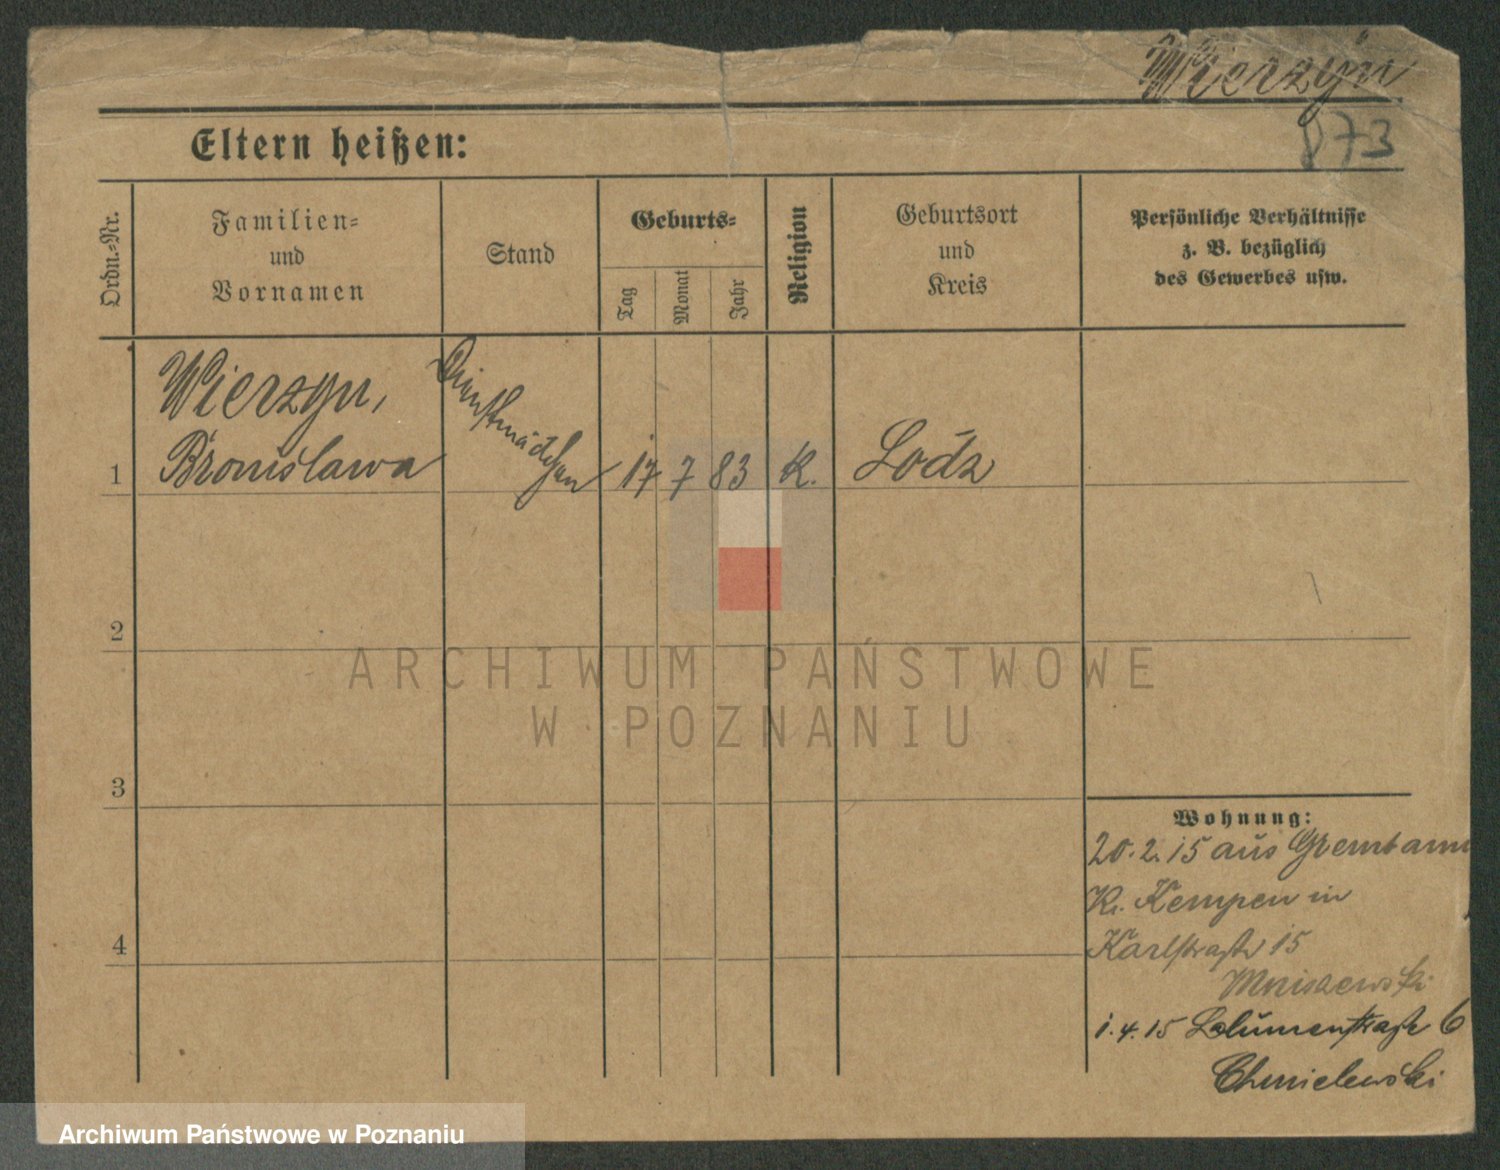 Wierzyn
873
Eltern heißen:
Ordn.-Nr.
Familien-
und
Vornamen
Stand
Geburts-
Tag
Monat
Jahr
Religion
Geburtsort
und
Kreis
Persönliche Verhältnisse
z. B. bezüglich
des Gewerbes usw.
Wierzyn,
Dienstmädchen
1 Bronislawa 17 7 83 K. Lodz
2
3
4
Wohnung:
20.2.15 aus
Kr. Kempen in
Karlstraße 15
Mniszewski
1.4.15 Blumenstraße 6
Chmielewski
ARCHIWUM PAŃSTWOWE
W POZNANIU
Archiwum Państwowe w Poznaniu